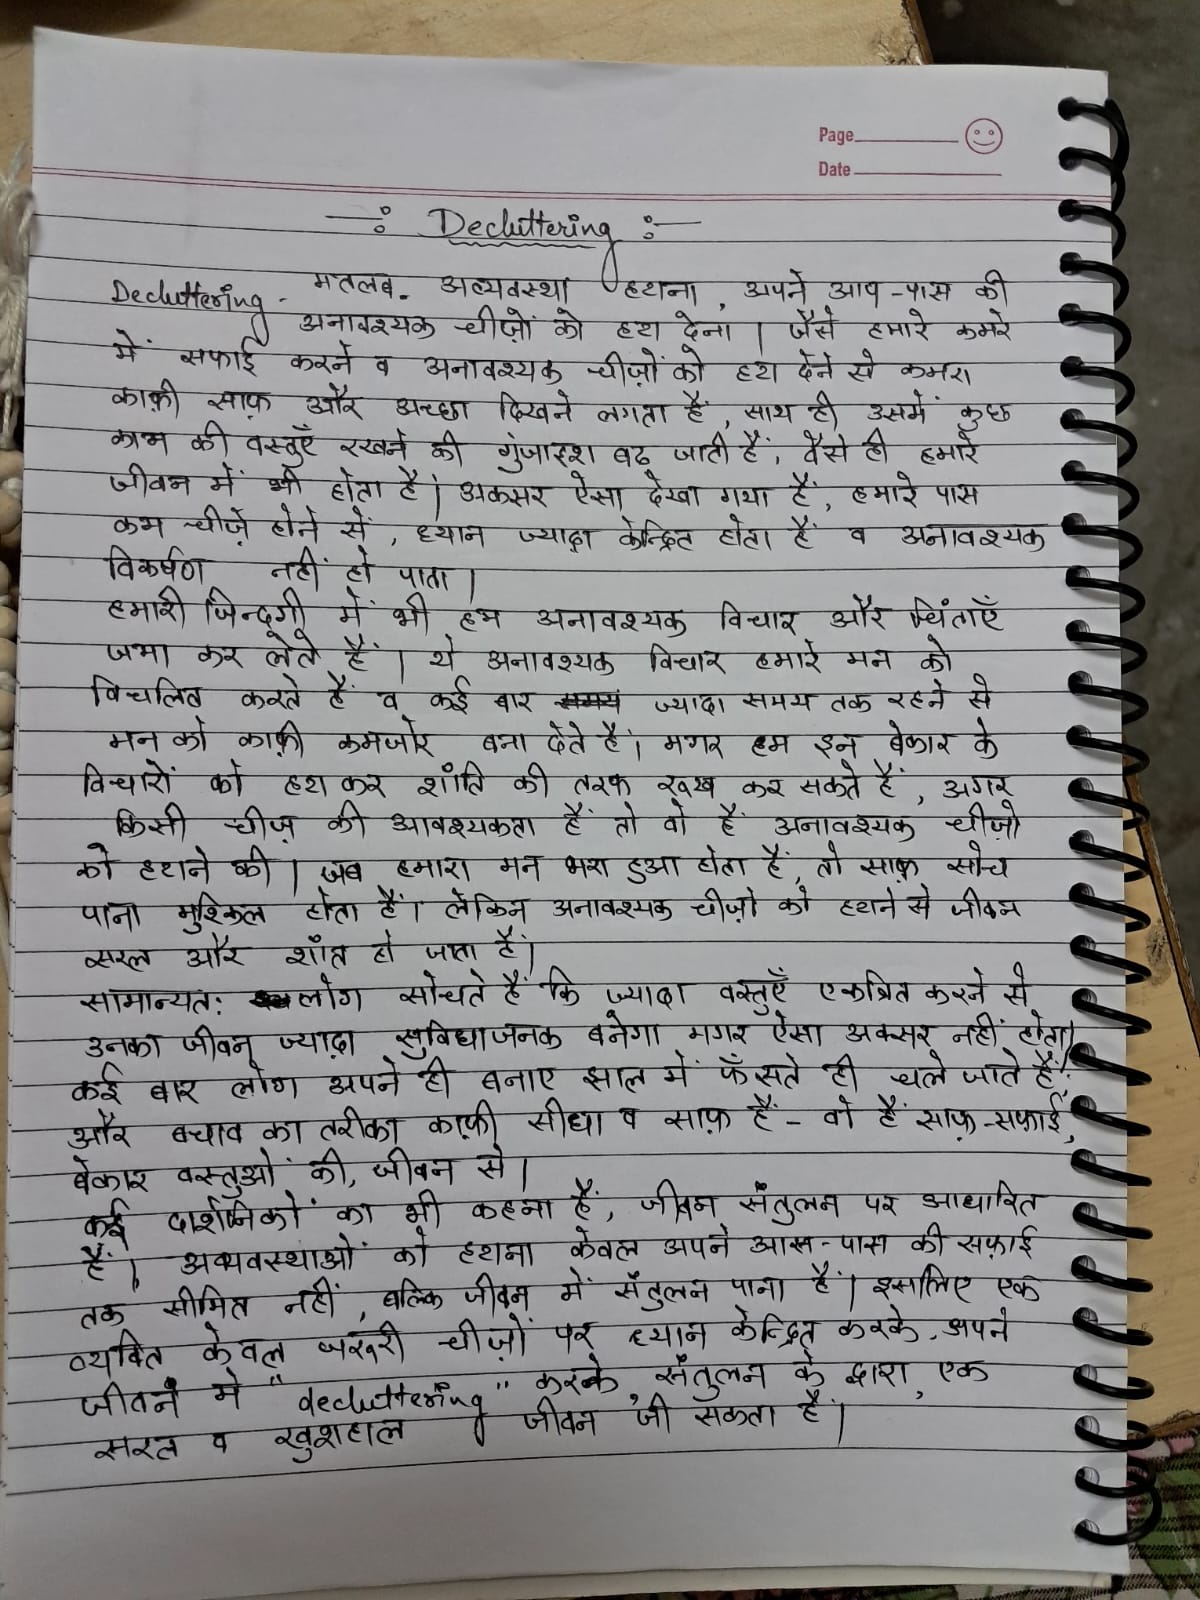 Page
Date
—: Decluttering :—
Decluttering - मतलब. अव्यवस्था हटाना, अपने आप-पास की
अनावश्यक चीज़ों को हटा देना। जैसे हमारे कमरे
में सफाई करने व अनावश्यक चीज़ों को हटा देने से कमरा
काफ़ी साफ़ और अच्छा दिखने लगता हैं, साथ ही उसमें कुछ
काम की वस्तुएँ रखने की गुंजाइश बढ़ जाती हैं, वैसे ही हमारे
जीवन में भी होता है। अकसर ऐसा देखा गया हैं, हमारे पास
कम चीज़े होने से, ध्यान ज्यादा केन्द्रित होता हैं व अनावश्यक
विकर्षण नहीं हो पाता।
हमारी ज़िन्दगी में भी हम अनावश्यक विचार और चिंताएँ
जमा कर लेते हैं। ये अनावश्यक विचार हमारे मन को
विचलित करते हैं व कई बार ज्यादा समय तक रहने से
मन को काफ़ी कमजोर बना देते है। मगर हम इन बेकार के
विचारों को हटा कर शांति की तरफ रूख कर सकते हैं, अगर
किसी चीज़ की आवश्यकता हैं तो वो हैं अनावश्यक चीज़ो
को हटाने की। जब हमारा मन भरा हुआ होता हैं, तो साफ़ सोच
पाना मुश्किल होता हैं। लेकिन अनावश्यक चीज़ो को हटाने से जीवन
सरल और शाँत हो जाता हैं।
सामान्यत: लोग सोचते हैं कि ज्यादा वस्तुएँ एकत्रित करने से
उनका जीवन ज्यादा सुविधाजनक बनेगा मगर ऐसा अक्सर नहीं होता।
कई बार लोग अपने ही बनाए झाल में फँसते ही चले जाते हैं।
और बचाव का तरीका काफ़ी सीधा व साफ़ हैं - वो हैं साफ़-सफ़ाई,
बेकार वस्तुओं की, जीवन से।
कई दार्शनिकों का भी कहना हैं, जीवन संतुलन पर आधारित
हैं। अव्यवस्थाओं को हटाना केवल अपने आस-पास की सफ़ाई
तक सीमित नहीं, बल्कि जीवन में संतुलन पाना हैं। इसलिए एक
व्यक्ति केवल जरूरी चीज़ों पर ध्यान केन्द्रित करके, अपने
जीतने में "decluttering" करके, संतुलन के द्वारा, एक
सरल व खुशहाल जीवन जी सकता हैं।